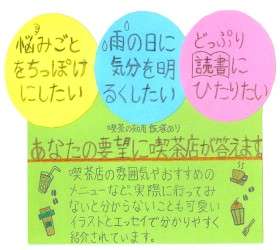 悩みごと
をちっぽけ
にしたい
雨の日に
気分を明
るくしたい
どっぷり
読書に
ひたりたい
喫茶の効用 飯塚めり
あなたの要望に喫茶店が答えます
喫茶店の雰囲気やおすすめの
メニューなど、実際に行ってみ
ないと分からないことも可愛い
イラストとエッセイで分かりやすく
紹介されています。